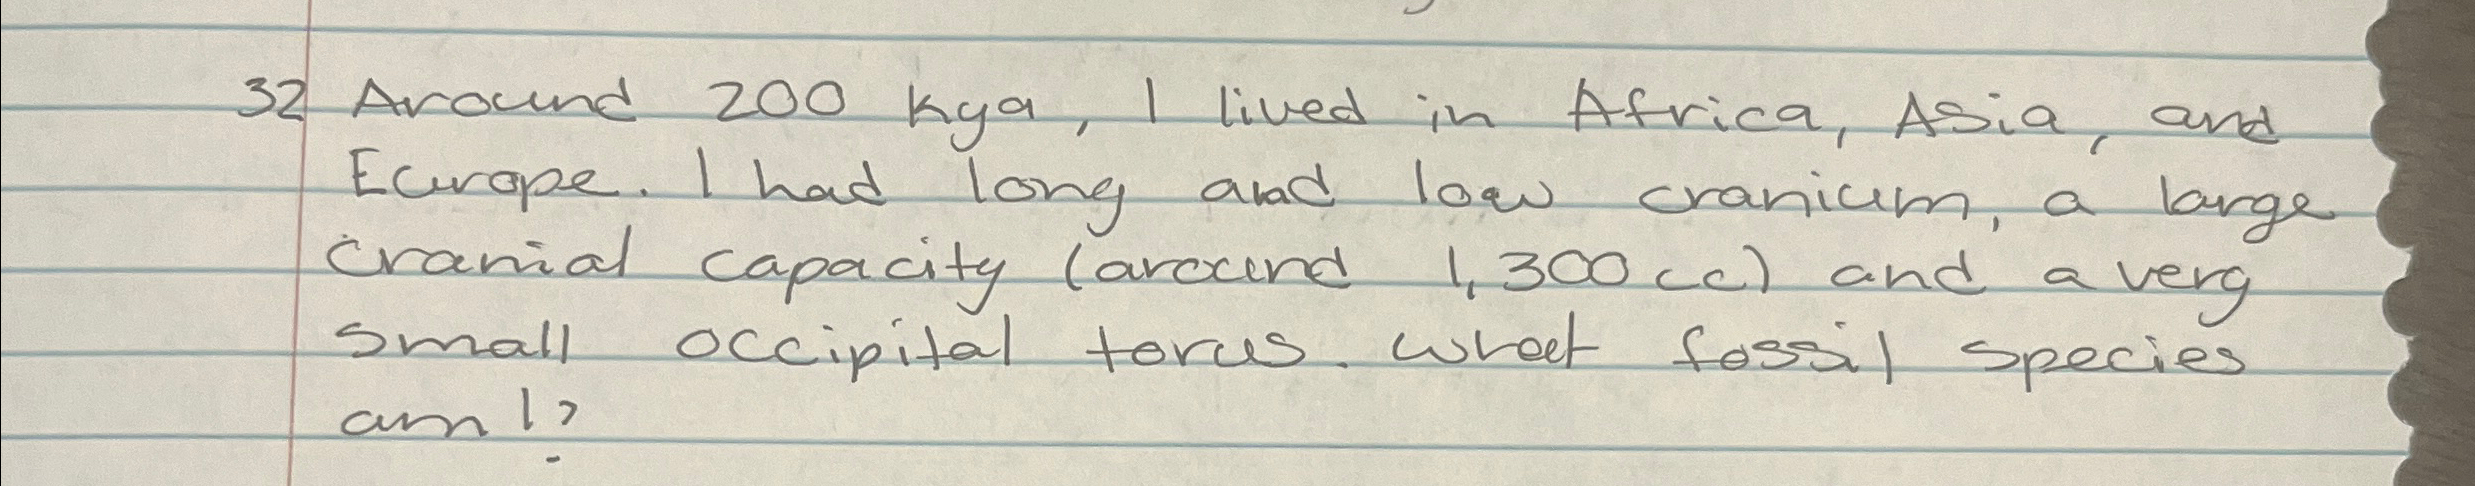 32 Around 200 kya, I lived in Africa, Asia, and
Europe. I had long and low cranium, a large
cranial capacity (around 1,300 cc) and a very
small occipital torus. What fossil species
am I?